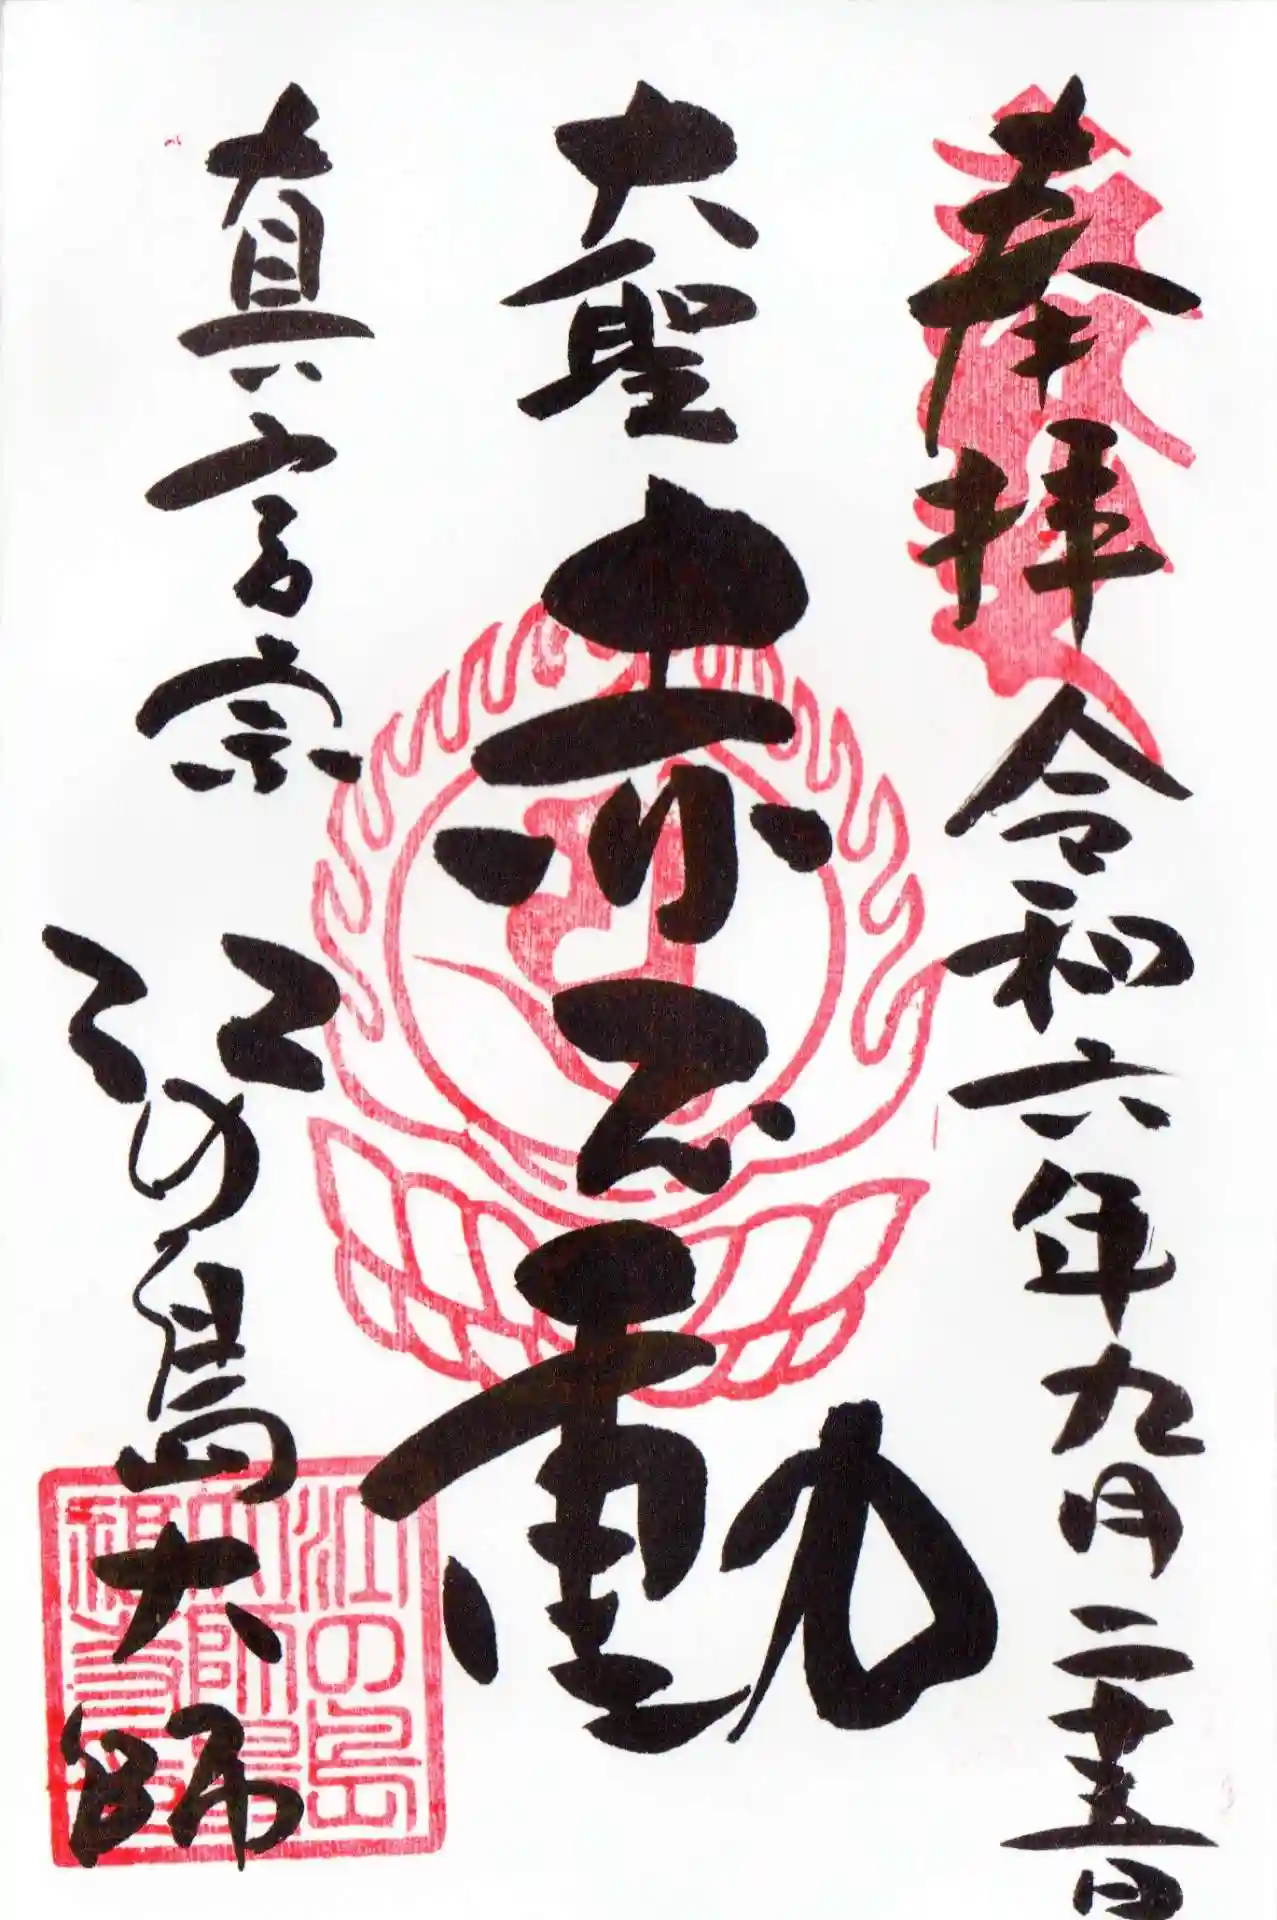 奉拝 令和六年九月二十五日
大聖 赤不動
真言宗
江の島大師
江の島
大師